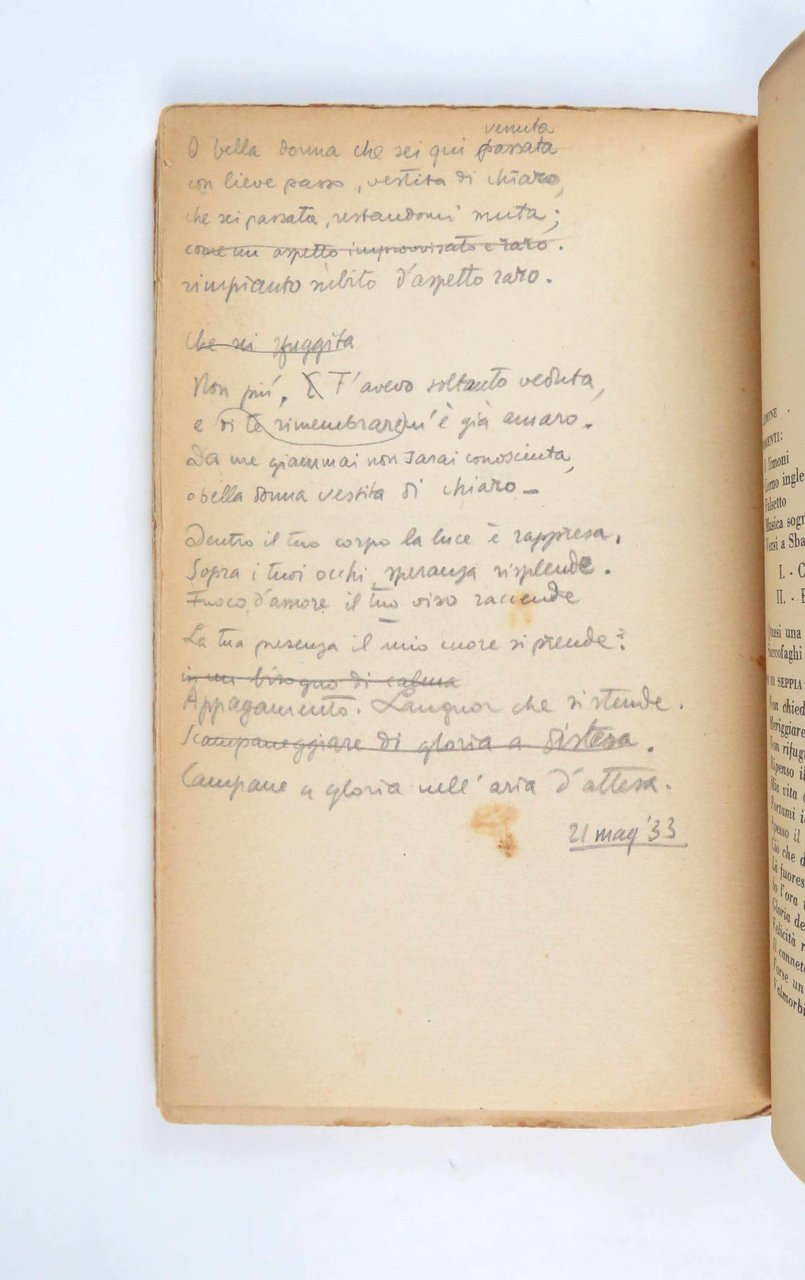 venuta
O bella donna che sei qui passata
con lieve passo, vestita di chiaro,
che sei passata, restandomi muta;
come un aspetto improvvisato e raro.
rimpianto subito d'aspetto raro.
che sei sfuggita
Non più. T'avevo soltanto veduta,
e di te rimembrare m'è già amaro.
Da me giammai non sarai conosciuta,
o bella donna vestita di chiaro –
Dentro il tuo corpo la luce è rappresa.
Sopra i tuoi occhi speranza risplende.
Fuoco d'amore il tuo viso raccende
La tua presenza il mio cuore si prende:
in un bisogno di calma
Appagamento. Languor che si stende.
Scampaneggiare di gloria a distesa.
Campane a gloria nell'aria d'attesa.
21 mag '33
Limoni
Corno ingles
Falsetto
Musica sogn
Versi a Sba
I. - C
II. - F
Quasi una
Sarcofaghi
DI SEPPIA
Non chied
Meriggiare
Non rifug
Ripenso il
Mia vita
Portami i
Spesso il
Ciò che d
Là fuores
So l'ora
Gloria de
Felicità r
Il cannet
Forse un
Valmorbi